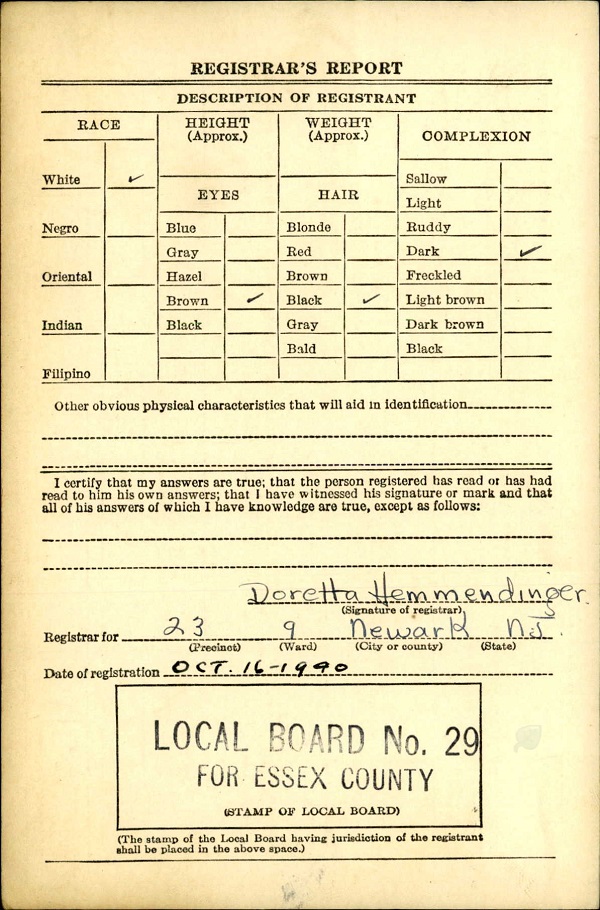 REGISTRAR'S REPORT
DESCRIPTION OF REGISTRANT
RACE
HEIGHT
(Approx.)
WEIGHT
(Approx.)
COMPLEXION
White ✓
Negro
Oriental
Indian
Filipino
EYES
Blue
Gray
Hazel
Brown ✓
Black
HAIR
Blonde
Red
Brown
Black ✓
Gray
Bald
Sallow
Light
Ruddy
Dark ✓
Freckled
Light brown
Dark brown
Black
Other obvious physical characteristics that will aid in identification
I certify that my answers are true; that the person registered has read or has had
read to him his own answers; that I have witnessed his signature or mark and that
all of his answers of which I have knowledge are true, except as follows:
Doretta Hemmendinger
(Signature of registrar)
Registrar for 23 9 Newark NJ.
(Precinct) (Ward) (City or county) (State)
Date of registration OCT. 16-1940
LOCAL BOARD No. 29
FOR ESSEX COUNTY
(STAMP OF LOCAL BOARD)
(The stamp of the Local Board having jurisdiction of the registrant
shall be placed in the above space.)